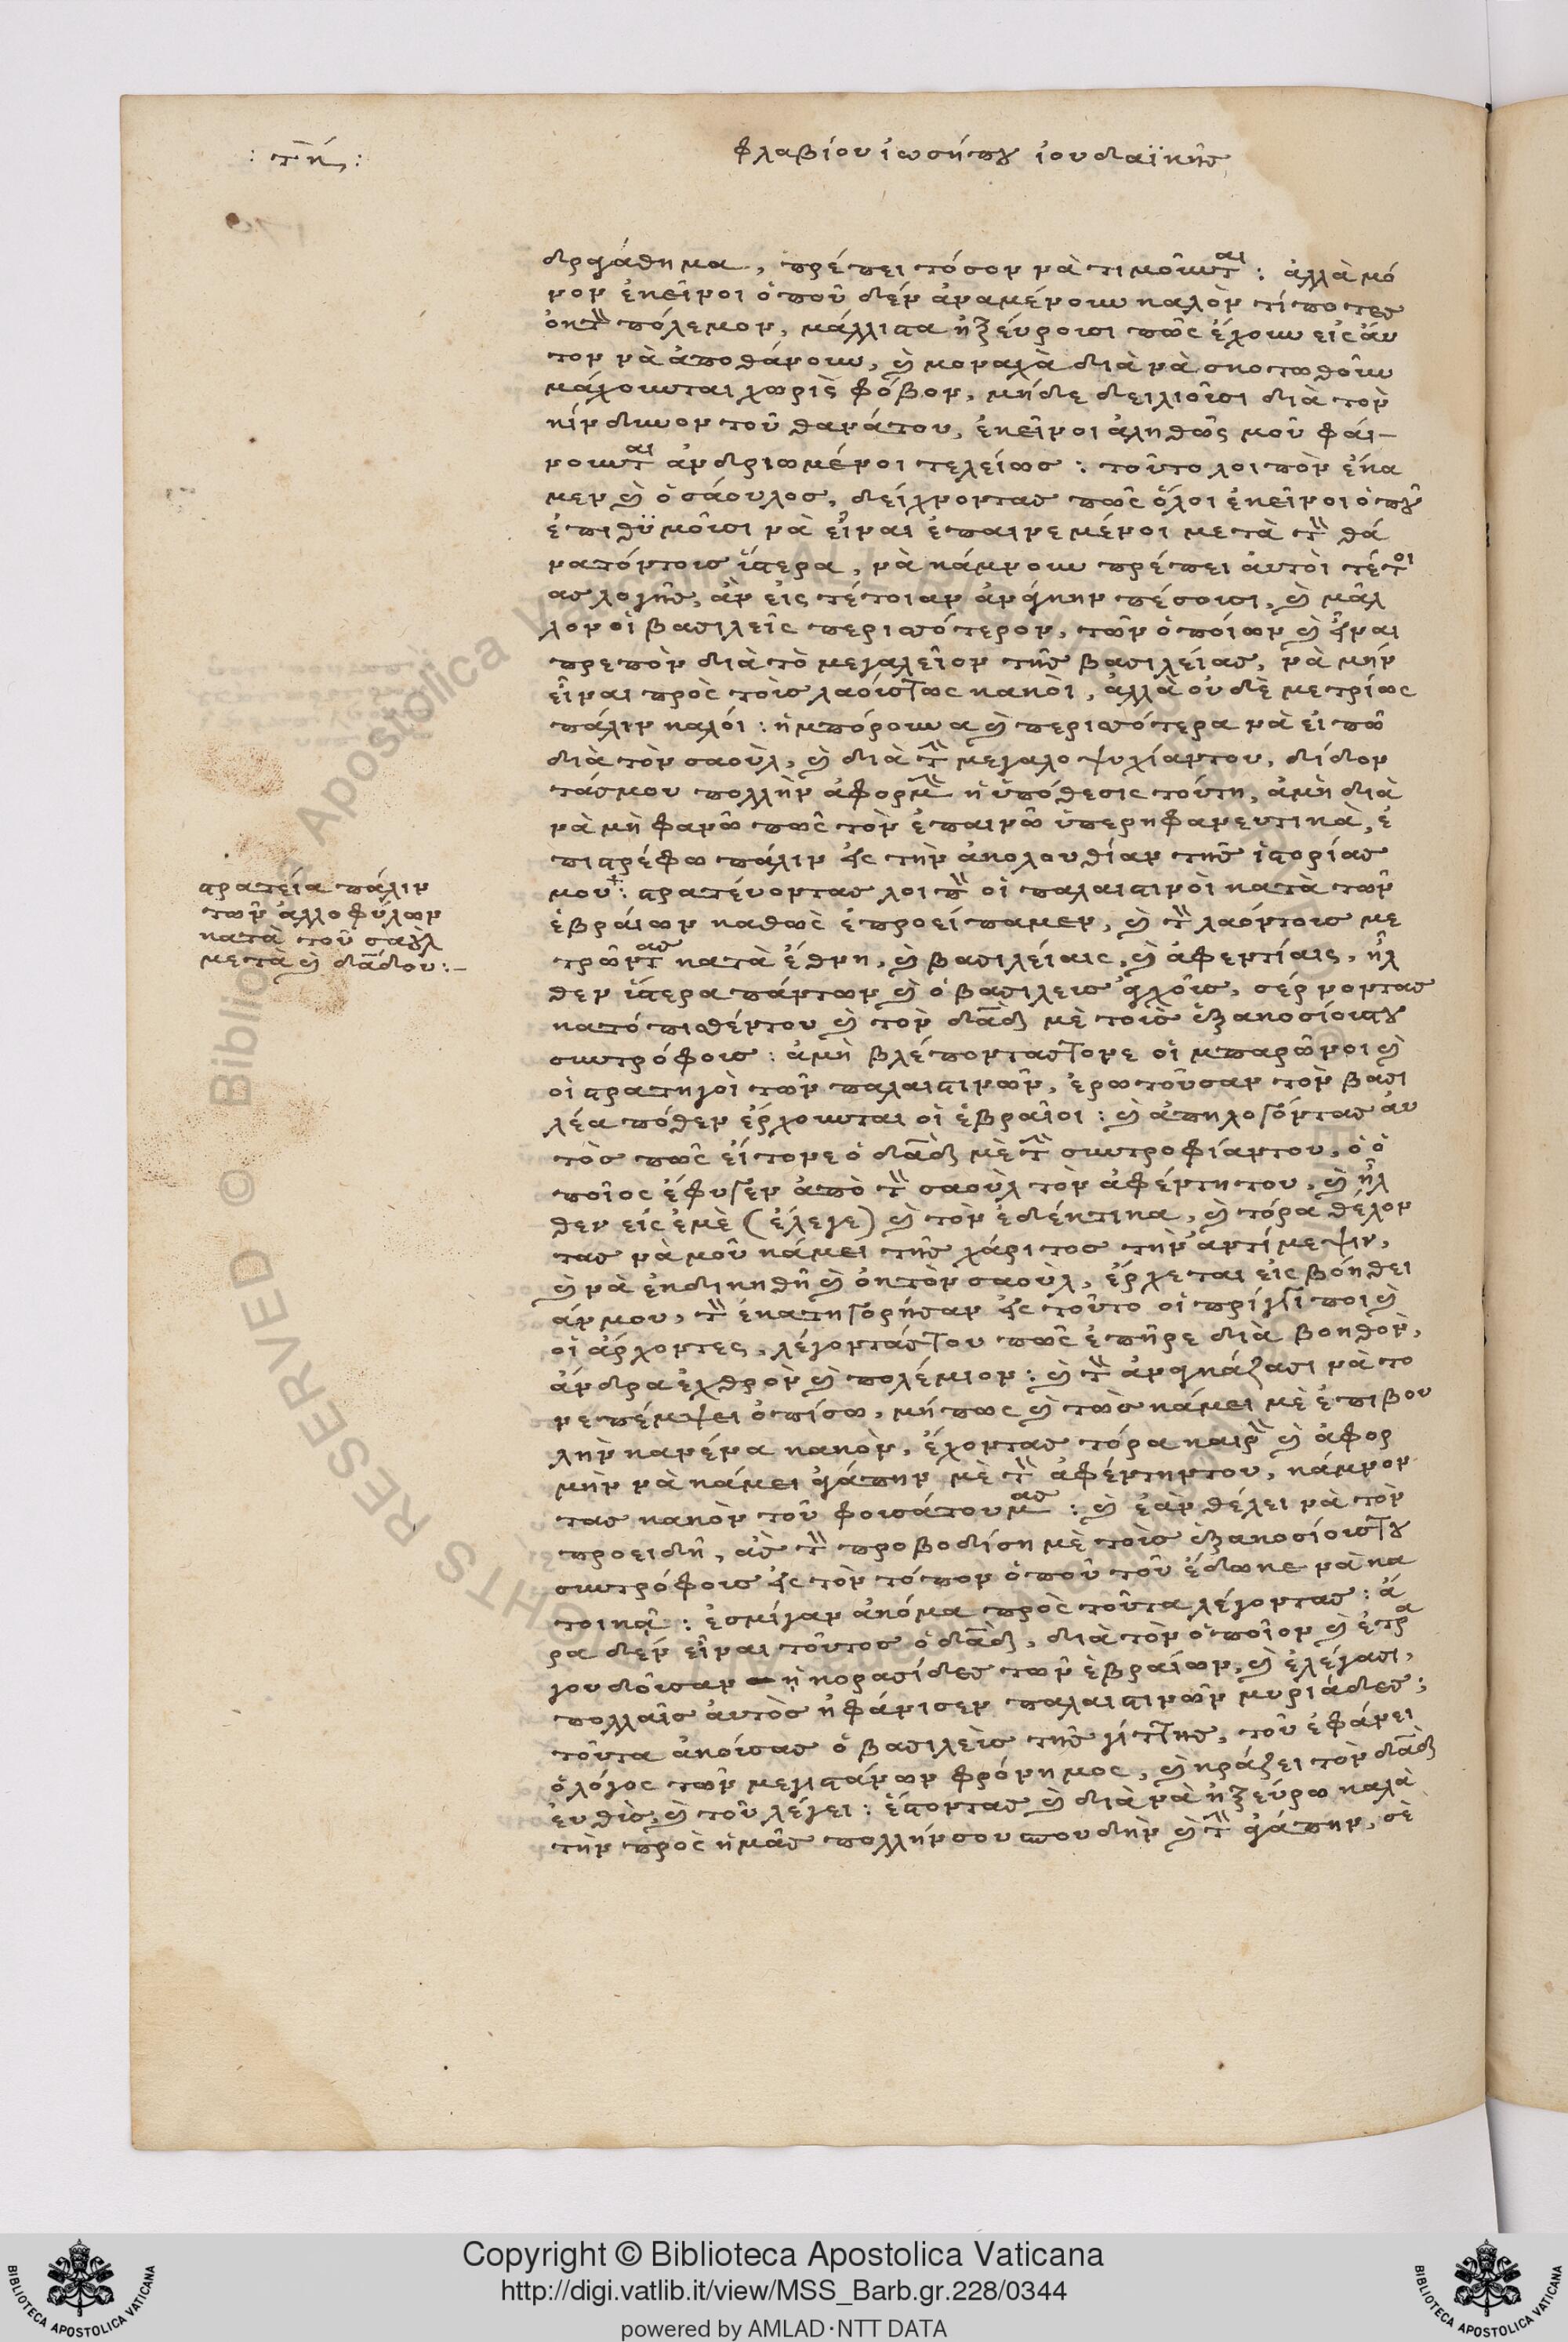 : τη :
φλαβίου ἰωσήπου ἰουδαϊκῆς
δραγάθημα, πρέπει τόσον νὰ τιμοῦνται : ἀλλὰ μό
νον ἐκεῖνοι ὁποῦ δέν ἀναμένουν καλὸν τίποτες
ὀκτὸν πόλεμον, μάλλιστα ἠξεύροισι πῶς ἔχουν εἰς ἀυ
τον νὰ ἀποθάνουν, καὶ μοναχὰ διὰ νὰ σκοτωθοῦν
μάχουνται χωρὶς φόβον, μήδε δειλιοῖσι διὰ τὸν
κίνδυνον τοῦ θανάτου, ἐκεῖνοι ἀληθῶς μοῦ φάι-
νουνται ἀνδριωμένοι τελείως : τοῦτο λοιπὸν ἔκα
μεν καὶ ὁ σάουλος, δείχνοντας πῶς ὅλοι ἐκεῖνοι ὁποῦ
ἐπιθϋμοῖσι νὰ εἶναι ἐπαινεμένοι μετὰ τὸν θά
νατόντοις ὕστερα, νὰ κάμνουν πρέπει ἀυτὸι τέτοι
ας λογῆς, ἂν εἰς τέτοιαν ἀνάγκην πέσοισι, καὶ μᾶλ
λον οἱ βασιλεῖς περισσότερον, τῶν ὁπόιων καὶ εἶναι
πρεπὸν διὰ τὸ μεγαλεῖον τῆς βασιλείας, νὰ μήν
εἶναι πρὸς τὸις λαόις τως κακὸι, ἀλλὰ οὐδὲ μετρίως
πάλιν καλόι : ἠμπόρουν α καὶ περισσότερα νὰ εἰπῶ
διὰ τὸν σαοὺλ, καὶ διὰ τὴν μεγαλοψυχίαντου, δίδον
τάσμου πολλὴν ἀφορμὴν ἡ ὑπόθεσις τούτη, ἀμὴ διὰ
νὰ μὴ φανῶ πῶς τὸν ἐπαινῶ ὑπερηφανευτικὰ, ἐ
πιστρέφω πάλιν εἰς τὴν ἀκολουθίαν τῆς ἱστορίας
μου : στρατέυοντας λοιπὸν οἱ παλαιστινὸι κατὰ τῶν
ἑβράιων καθὼς ἐπροείπαμεν, καὶ τὸν λαόντοις με
τρῶντας κατὰ ἔθνη, καὶ βασιλείαις, καὶ ἀφεντίαις, ἦλ
θεν ὕστερα πάντων καὶ ὁ βασιλεις ἀγχοῖς, σέρνοντας
κατόπιθέντου καὶ τὸν δαβὶδ μὲ τοὶς ἑξακοσίοιςτου
συντρόφοις : ἀμὴ βλέποντας τονε οἱ μπαρῶνοι καὶ
οἱ στρατηγοὶ τῶν παλαιστινῶν, ἐρωτοῦσαν τὸν βασι
λέα πόθεν ἔρχουνται οἱ ἑβραῖοι : καὶ ἀπηλογόντας ἀυ
τὸς πῶς εἴτονε ὁ δαβὶδ μὲ τὴν συντροφίαντου, ὁ ὁ
ποῖος ἔφυγεν ἀπὸ τὸν σαοὺλ τὸν ἀφέντητου, καὶ ἦλ
θεν εἰς ἐμὲ (ἔλεγε) καὶ τὸν ἐδέκτικα, καὶ τόρα θέλον
τας νὰ μοῦ κάμει τῆς χάριτος τὴν ἀντίμεψιν,
καὶ νὰ ἐκδικηθῆ καὶ ὀκτὸν σαοὺλ, ἔρχεται εἰς βόηθει
άνμου, τὸν ἐκατηγορήσαν εἰς τοῦτο οἱ πρίγκιποι καὶ
οἱ ἄρχοντες, λέγοντάς του πῶς ἐπῆρε διὰ βοηθὸν,
ἄνδρα ἐχθρὸν καὶ πολέμιον : καὶ τὸν ἀναγκάζασι νὰ το
νε πέμψει ὀπίσω, μήπως καὶ τὼς κάμει μὲ ἐπιβου
λὴν κανένα κακὸν, ἔχοντας τόρα καιρὸν καὶ ἀφορ
μὴν νὰ κάμει ἀγάπην μὲ τὸν ἀφέντηντου, κάμνον
τας κακὸν τοῦ φοισάτουμας : καὶ ἐὰν θέλει νὰ τὸν
προειδῆ, ἂς τὸν προβοδίση μὲ τοὶς ἑξακοσίοις του
συντρόφοις εἰς τὸν τόπον ὁποῦ τοῦ ἔδωκε νὰ κα
τοικᾶ : ἐσμίγαν ἀκόμα πρὸς τοῦτα λέγοντας : ἄ
ρα δέν εἶναι τοῦτος ὁ δαβὶδ, διὰ τὸν ὁποῖον καὶ ἐτρα
γουδοῖσαν ἡ κορασίδες τῶν ἑβραίων, καὶ ἐλέγασι,
πολλαῖς ἀυτὸς ἠφάνισεν παλαιστινῶν μυριάδες ;
τοῦτα ἀκοίσας ὁ βασιλεὶς τῆς γίττης, τοῦ ἐφάνει
ὁ λόγος τῶν μεγιστάνων φρόνημος, καὶ κράζει τὸν δαβὶδ
ἐυθὶς, καὶ τοῦ λέγει : ἔστοντας καὶ διὰ νὰ ἠξεύρω καλὰ
τὴν πρὸς ἡμᾶς πολλήνσου σπουδὴν καὶ τὴν ἀγάπην, σὲ
στρατεία πάλιν
τῶν ἀλλοφύλων
κατὰ τοῦ σαοὺλ
μετὰ καὶ δαβίδου :-
Copyright © Biblioteca Apostolica Vaticana
http://digi.vatlib.it/view/MSS_Barb.gr.228/0344
powered by AMLAD·NTT DATA
BIBLIOTECA APOSTOLICA VATICANA
BIBLIOTECA APOSTOLICA VATICANA